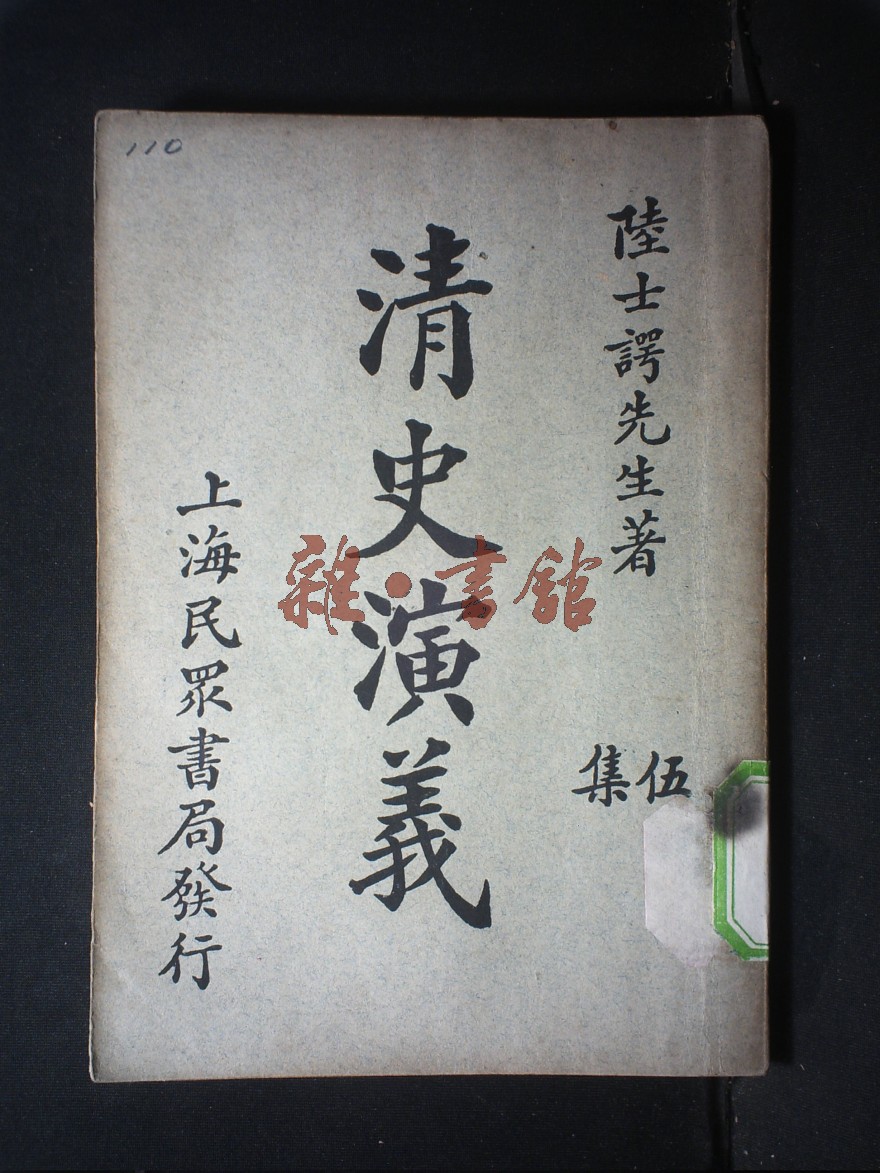 110
陸士諤先生著
伍集
清史演義
上海民眾書局發行
雜·書館